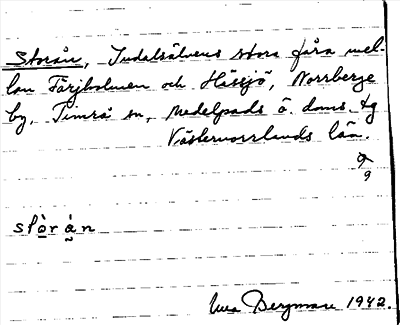 Storån, Indalsälvens stora fåra mel-
lan Färjholmen och Hässjö, Norrberge
by, Timrå sn, Medelpads ö. doms. tg
Västernorrlands län.
9
stòrán
Bergman 1942.